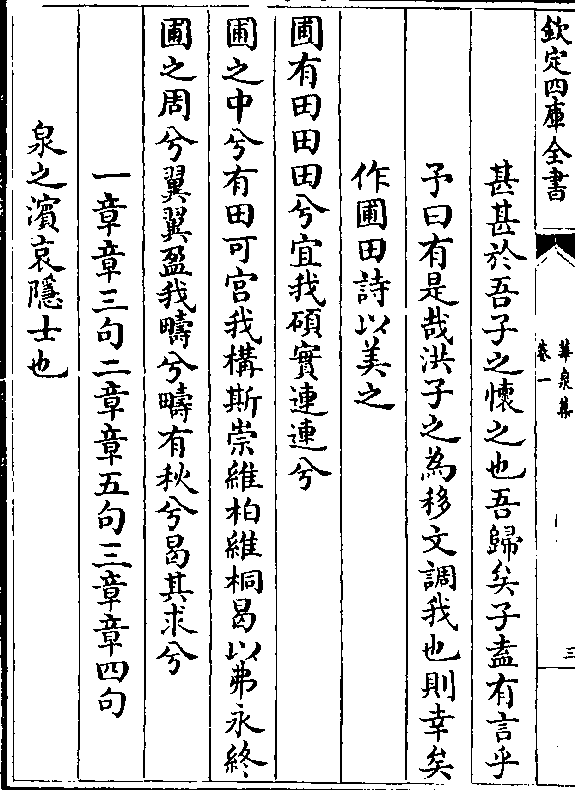 欽定四庫全書
華泉集
卷一
三
甚甚於吾子之懷之也吾歸矣子盍有言乎
予曰有是哉洪子之為移文調我也則幸矣
作圃田詩以美之
圃有田田田兮宜我碩實連連兮
圃之中兮有田可宫我構斯崇維柏維桐曷以弗永終
圃之周兮翼翼盈我疇兮疇有秋兮曷其求兮
一章章三句二章章五句三章章四句
泉之濱哀隱士也